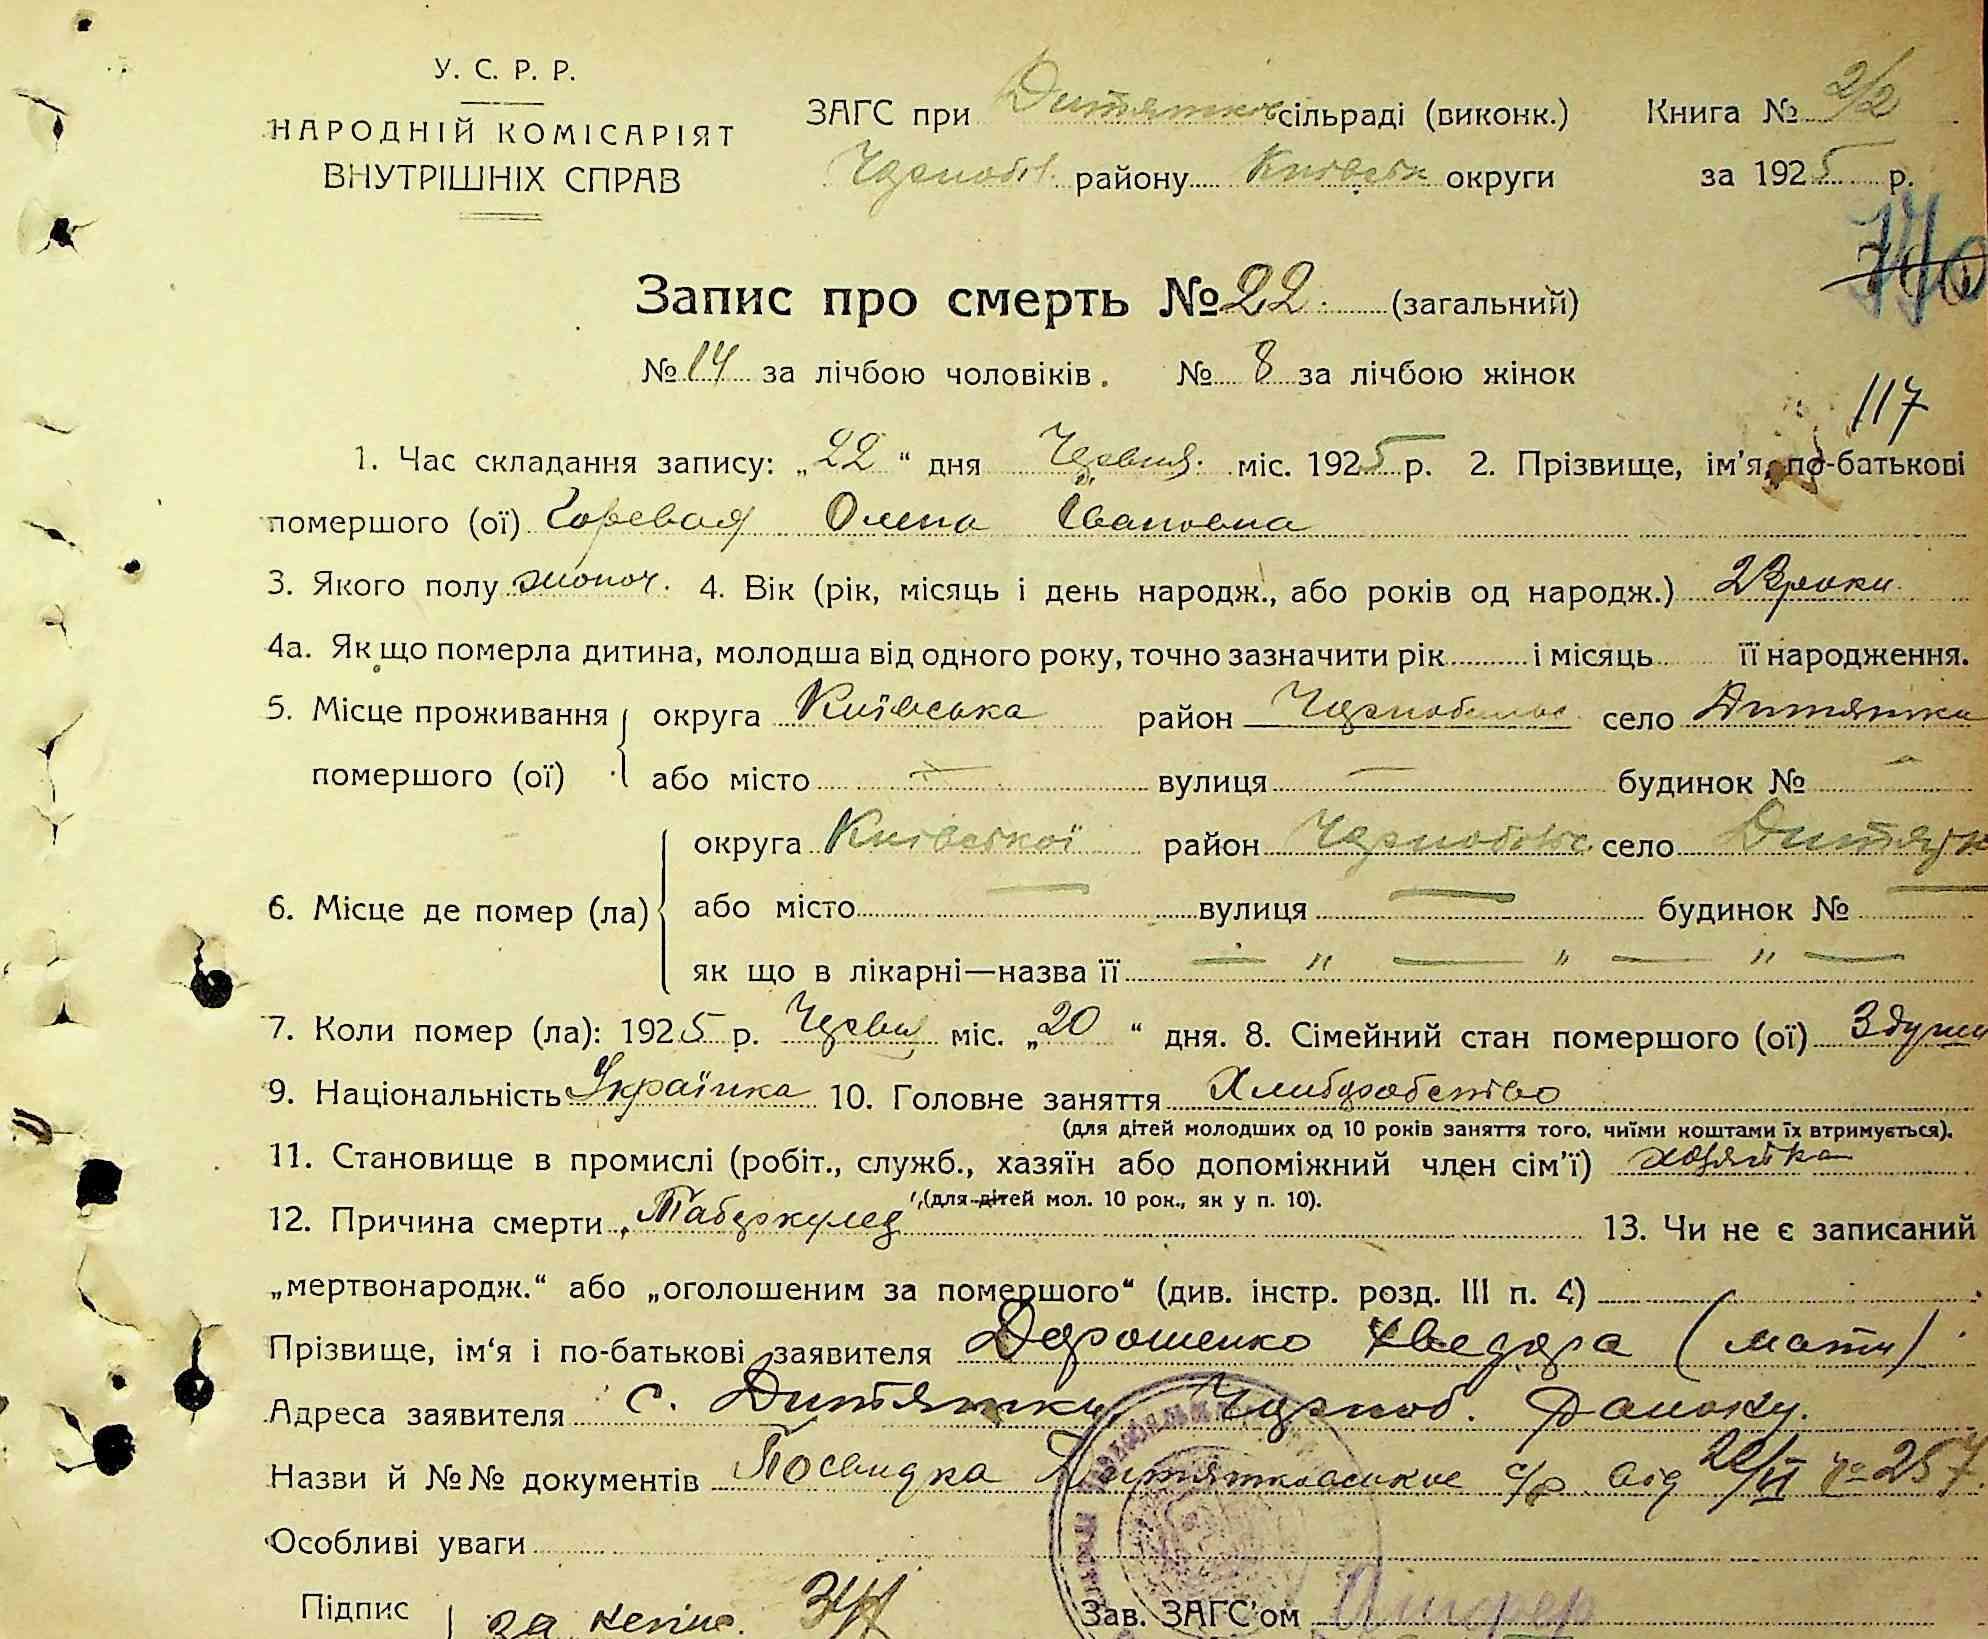 У. С. Р. Р.
НАРОДНІЙ КОМІСАРІЯТ
ВНУТРІШНІХ СПРАВ
ЗАГС при Дитятков сільраді (виконк.) Книга № 2/2
Чернобіл. району Київськ округи за 1925 р.
Запис про смерть № 22. (загальний)
№ 14 за лічбою чоловіків. № 8 за лічбою жінок
117
1. Час складання запису: „22“ дня Червня міс. 1925 р. 2. Прізвище, ім'я, по-батькові
помершого (ої) Горевая Олена Івановна
3. Якого полу жіноч. 4. Вік (рік, місяць і день народж., або років од народж.) 23 роки
4а. Як що померла дитина, молодша від одного року, точно зазначити рік і місяць її народження.
5. Місце проживання помершого (ої) округа Київська район Чернобильс село Дитятки
або місто — вулиця — будинок № —
6. Місце де помер (ла) округа Київської район Чернобільс село Дитятк
або місто — вулиця — будинок № —
як що в лікарні—назва її — „ — „ — „ —
7. Коли помер (ла): 1925 р. Червня міс. „20“ дня. 8. Сімейний стан помершого (ої)
9. Національність Українка 10. Головне заняття Хлиборобство
(для дітей молодших од 10 років заняття того, чиїми коштами їх втримується).
11. Становище в промислі (робіт., служб., хазяїн або допоміжний член сім'ї) хозяйка
(для дітей мол. 10 рок., як у п. 10).
12. Причина смерти „Таберкулез“ 13. Чи не є записаний
„мертвонародж.“ або „оголошеним за померщого“ (див. інстр. розд. III п. 4)
Прізвище, ім'я і по-батькові заявителя Дорошенко Хведора (мати)
Адреса заявителя с. Дитятки Черноб. Району.
Назви й №№ документів Посвидка Дитятковськое с/р від 22/VI № 257
Особливі уваги
Підпис за непис.
Зав. ЗАГС'ом